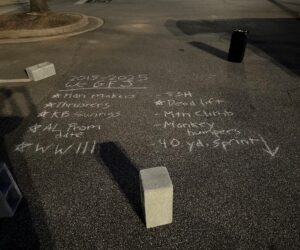 2015-2025
WE GFS
* Man Makers
* Thrusters
* KB Swings
* AL From
date
* WW III
- SSH
* Dead lift
- Mtn Climb
- Monkey
humpers
- 40 yd. Sprint